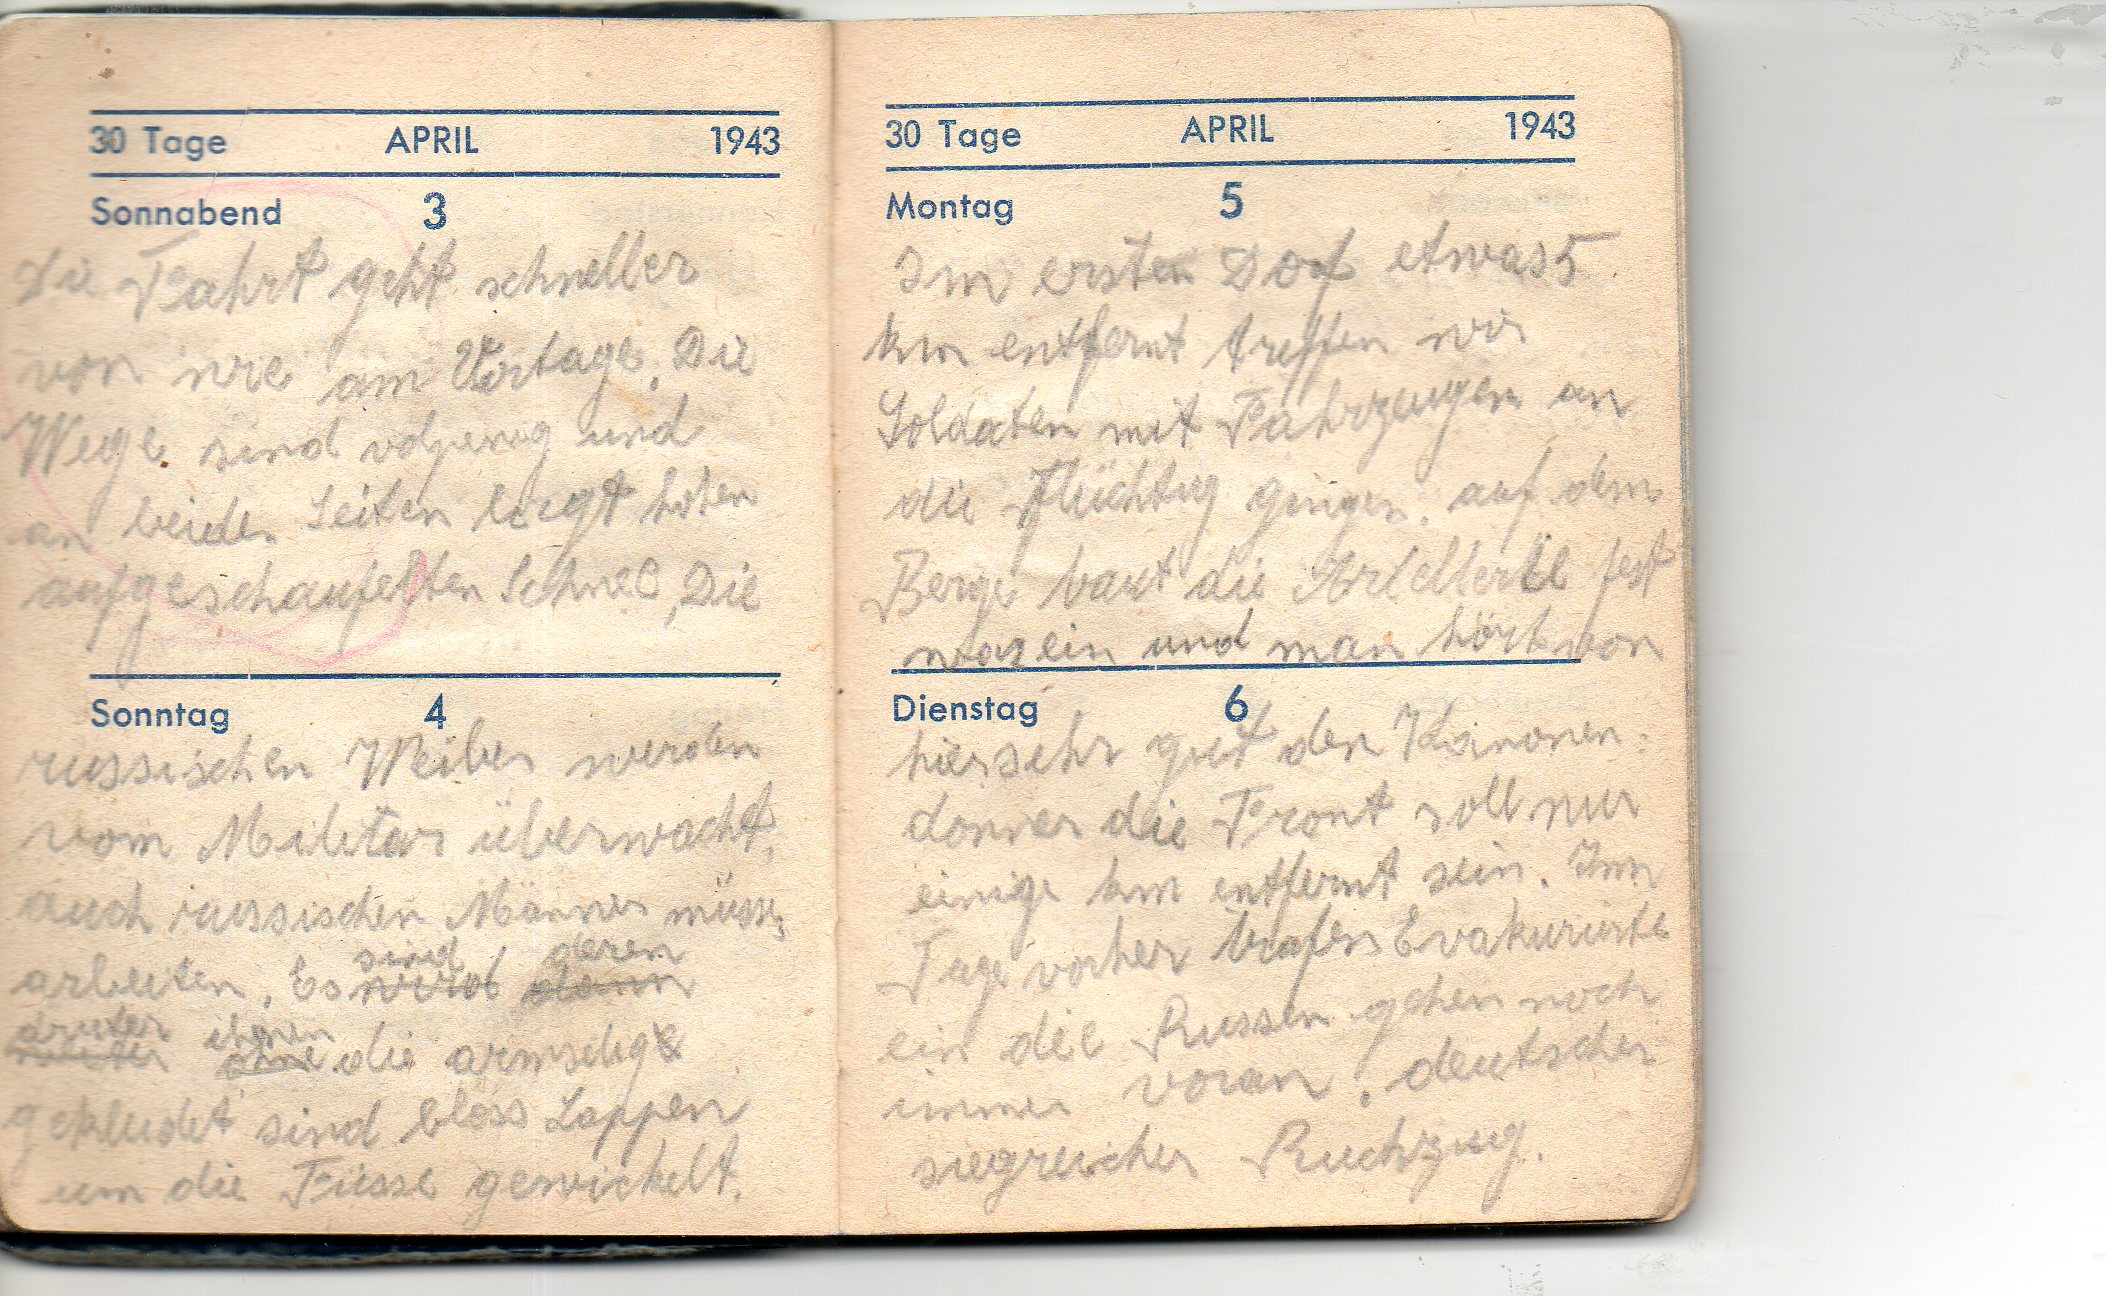 30 Tage APRIL 1943
Sonnabend 3
Die Fahrt geht schneller
von wie am Vortage. Die
Wege sind und
an beiden Seiten liegt hohen
aufgeschaufelten Schnee, Die
Sonntag 4
russischen Weiber werden
vom Militär überwacht,
auch russischen Männer müssen
arbeiten. Es wird dann
sind deren
drunter ihnen
die armselig
gekleidet sind bloss Lappen
um die Füsse gewickelt.
30 Tage APRIL 1943
Montag 5
Im ersten Dorf etwas 5
km entfernt treffen wir
Soldaten mit Fahrzeugen an
die gingen. auf dem
Berge baut die Artellerie fest
ein und man hört von
Dienstag 6
hier sehr gut den Kanonen:
donner die Front soll nur
einige km entfernt sein. Im
Tage vorher trafen Evakurirte
ein die Russen gehen noch
immer voran. deutscher
siegreicher Ruckzug.